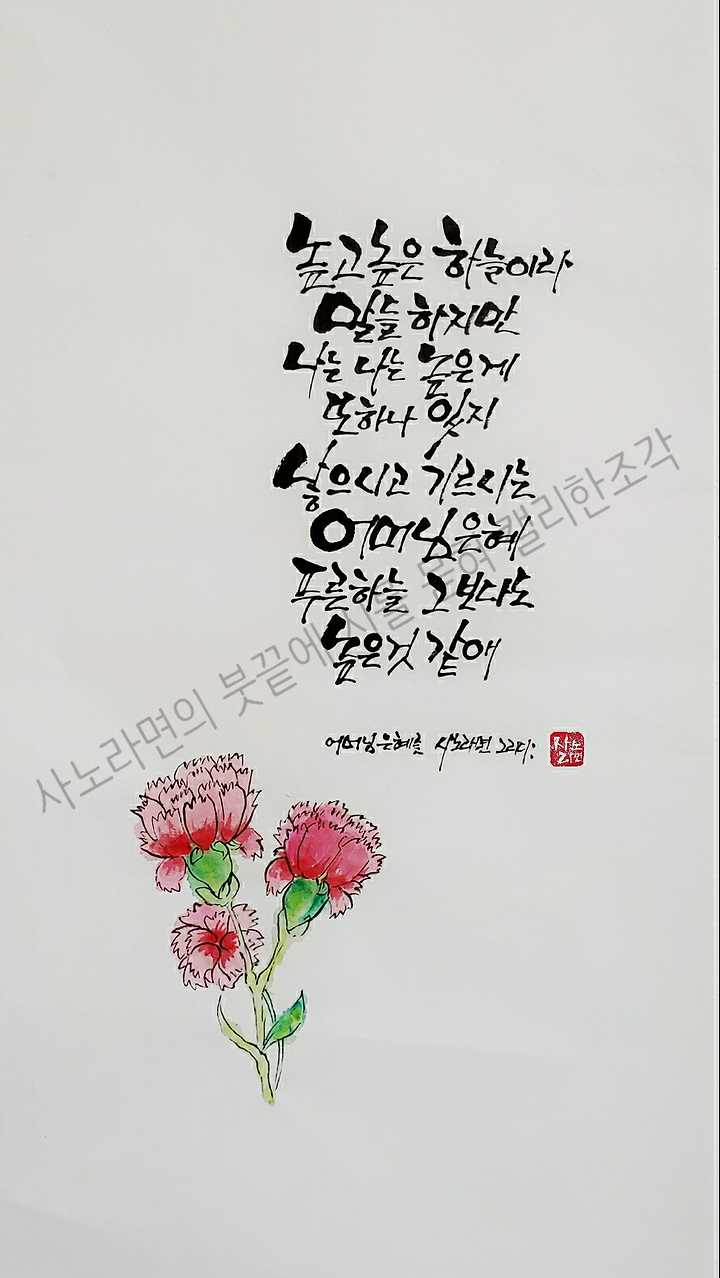 높고 높은 하늘이라
말들 하지만
나는 나는 높은게
또하나 있지
낳으시고 기르시는
어머님은혜
푸른하늘 그보다도
높은것 같애
어머님은혜를 사노라면 그리다;
사노라면
사노라면의 붓끝에 시를 묻혀 캘리한조각